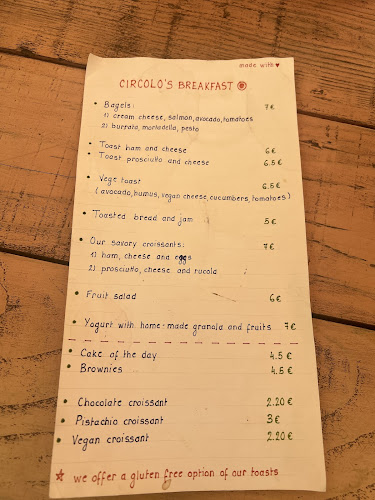 made with ♥
CIRCOLO'S BREAKFAST
• Bagels: 7€
1) cream cheese, salmon, avocado, tomatoes
2) burrata, mortadella, pesto
• Toast ham and cheese 6€
• Toast prosciutto and cheese 6.5€
• Vege toast 6.5€
(avocado, humus, vegan cheese, cucumbers, tomatoes)
• Toasted bread and jam 5€
• Our savory croissants: 7€
1) ham, cheese and eggs
2) prosciutto, cheese and rucola
• Fruit salad 6€
• Yogurt with home-made granola and fruits 7€
• Cake of the day 4.5€
• Brownies 4.5€
• Chocolate croissant 2.20€
• Pistachio croissant 3€
• Vegan croissant 2.20€
☆ we offer a gluten free option of our toasts